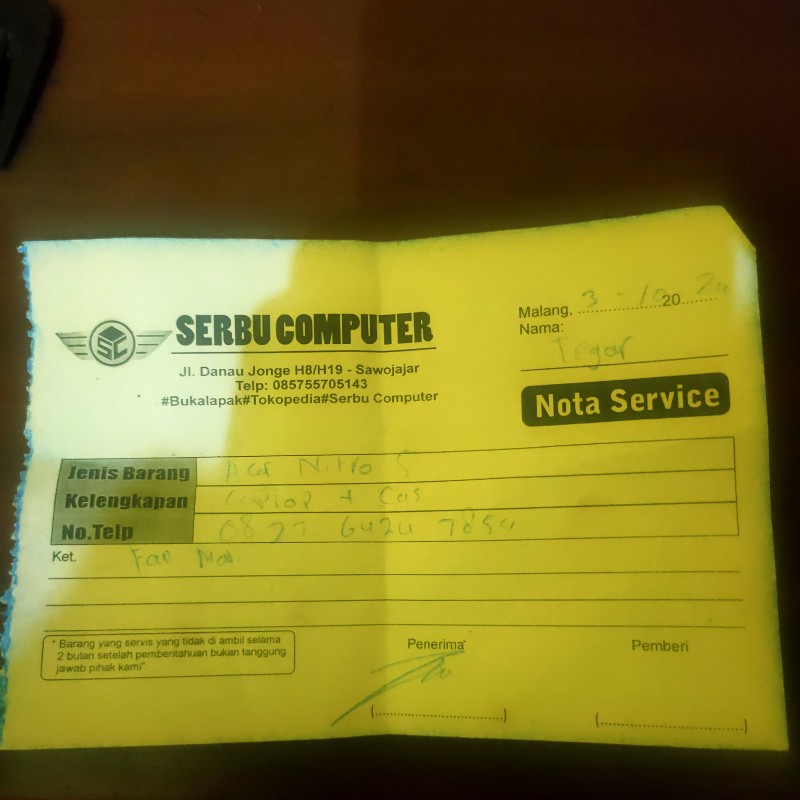 SC
SERBU COMPUTER
Jl. Danau Jonge H8/H19 - Sawojajar
Telp: 085755705143
#Bukalapak#Tokopedia#Serbu Computer
Malang, 3 - 10 20 24
Nama:
Tegar
Nota Service
Jenis Barang Acer Nitro 5
Kelengkapan Laptop + Cas
No.Telp
Ket.
* Barang yang servis yang tidak di ambil selama
2 bulan setelah pemberitahuan bukan tanggung
jawab pihak kami"
Penerima
Pemberi